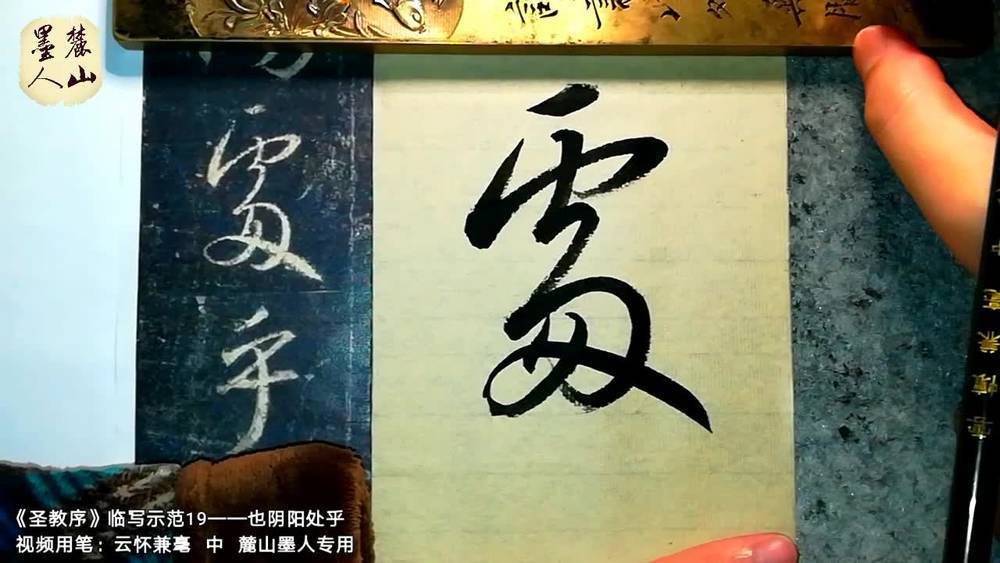 麓山
墨人
處
乎
處
《圣教序》临写示范19——也阴阳处乎
视频用笔：云怀兼毫 中 麓山墨人专用